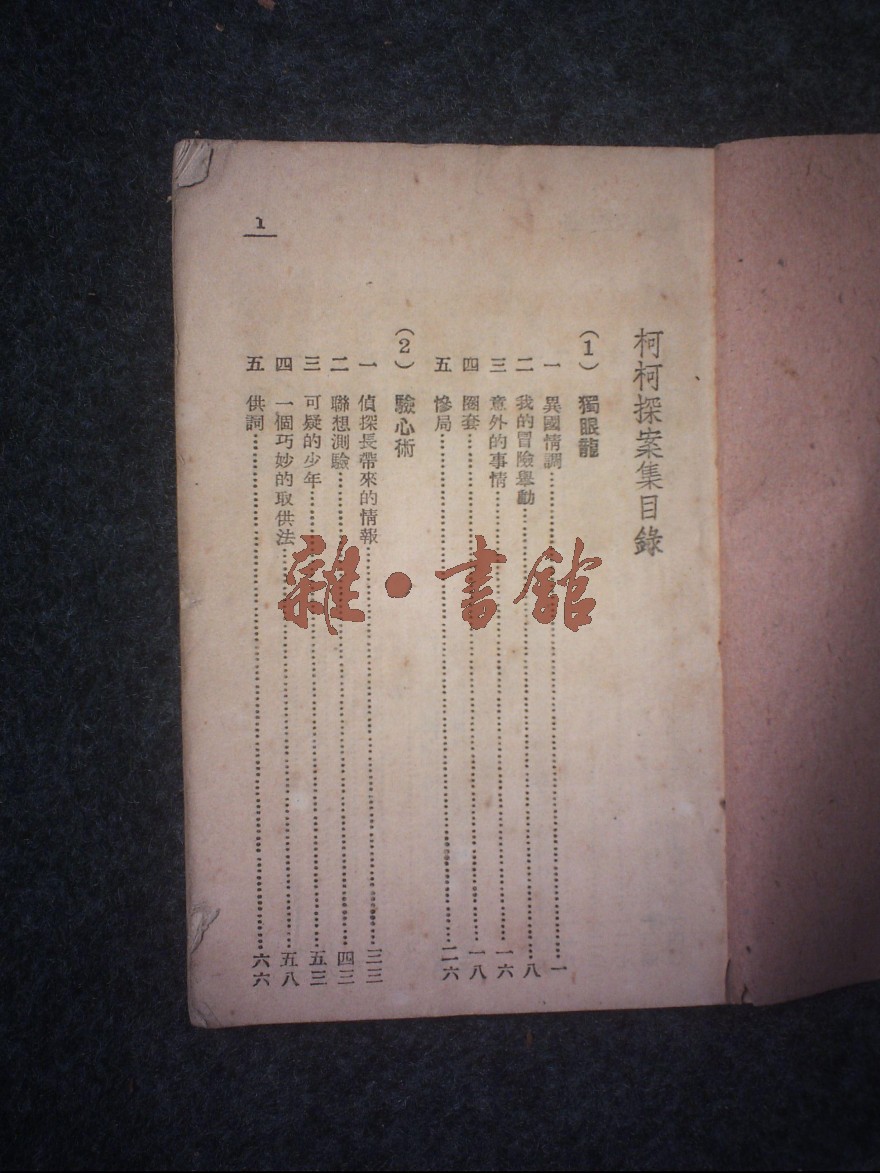 柯柯探案集目錄
(1) 獨眼龍
一 異國情調 一
二 我的冒險舉動 八
三 意外的事情 一六
四 圈套 一八
五 慘局 二六
(2) 驗心術
一 偵探長帶來的情報 三三
二 聯想測驗 四三
三 可疑的少年 五三
四 一個巧妙的取供法 五八
五 供詞 六六
1
雜·書館